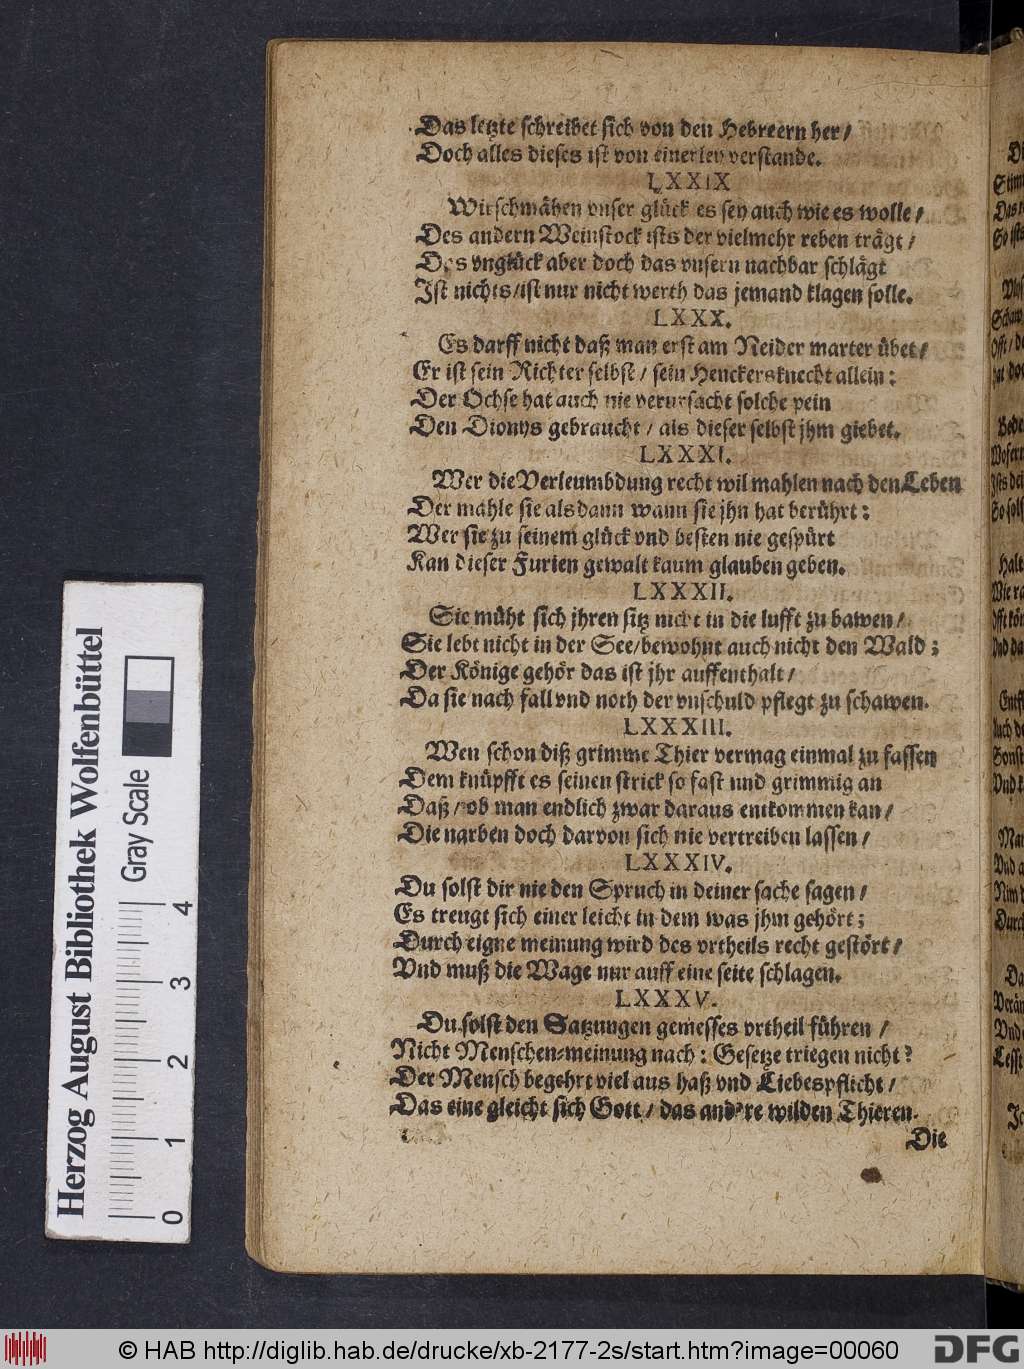 Das letzte schreibet sich von den Hebreern her /
Doch alles dieses ist von einerley verstande.
LXXIX
Wir schmähen vnser glück es sey auch wie es wolle /
Des andern Weinstock ists der vielmehr reben trägt /
Das vnglück aber doch das vnsern nachbar schlägt
Ist nichts / ist nur nicht werth das jemand klagen solle.
LXXX.
Es darff nicht daß man erst am Neider marter übet /
Er ist sein Richter selbst / sein Henckersknecht allein:
Der Ochse hat auch nie verursacht solche pein
Den Dionys gebraucht / als dieser selbst jhm giebet.
LXXXI.
Wer die Verleumbdung recht wil mahlen nach den Leben
Der mahle sie als dann wann sie jhn hat berührt:
Wer sie zu seinem glück vnd besten nie gespürt
Kan dieser Furien gewalt kaum glauben geben.
LXXXII.
Sie müht sich jhren sitz nicht in die lufft zu bawen /
Sie lebt nicht in der See / bewohnt auch nicht den Wald;
Der Könige gehör das ist jhr auffenthalt /
Da sie nach fall vnd noth der vnschuld pflegt zu schawen.
LXXXIII.
Wen schon diß grimme Thier vermag einmal zu fassen
Dem knüpfft es seinen strick so fast und grimmig an
Daß / ob man endlich zwar daraus entkommen kan /
Die narben doch darvon sich nie vertreiben lassen /
LXXXIV.
Du solst dir nie den Spruch in deiner sache sagen /
Es treugt sich einer leicht in dem was jhm gehört;
Durch eigne meinung wird des vrtheils recht gestört /
Vnd muß die Wage nur auff eine seite schlagen.
LXXXV.
Du solst den Satzungen gemesses vrtheil führen /
Nicht Menschen-meinung nach: Gesetze triegen nicht?
Der Mensch begehrt viel aus haß vnd Liebespflicht /
Das eine gleicht sich Gott / das andre wilden Thieren.
Die
Herzog August Bibliothek Wolfenbüttel
Gray Scale
0 1 2 3 4
© HAB http://diglib.hab.de/drucke/xb-2177-2s/start.htm?image=00060
DFG